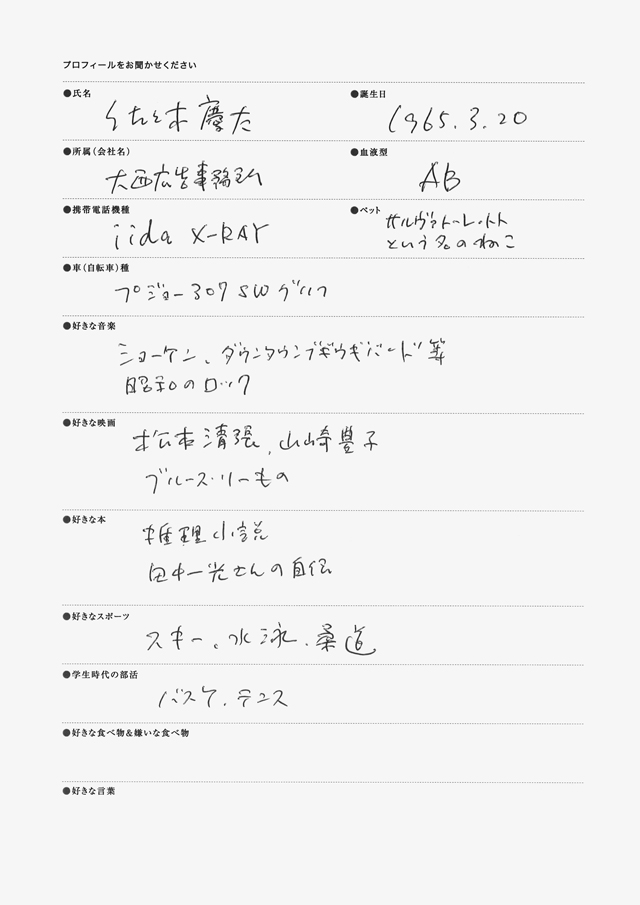 プロフィールをお聞かせください
●氏名
佐々木 慶太
●誕生日
1965.3.20
●所属(会社名)
大西広告事務所
●血液型
AB
●携帯電話機種
iida X-RAY
●ペット
サルヴァトーレ・トト
という名のねこ
●車(自転車)種
プジョー 307 SW グリーン
●好きな音楽
ショーケン、ダウンタウンブギウギバンド 等
昭和のロック
●好きな映画
松本清張、山崎豊子
ブルース・リーもの
●好きな本
推理小説
田中一光さんの自伝
●好きなスポーツ
スキー、水泳、柔道
●学生時代の部活
バスケ、テニス
●好きな食べ物&嫌いな食べ物
●好きな言葉